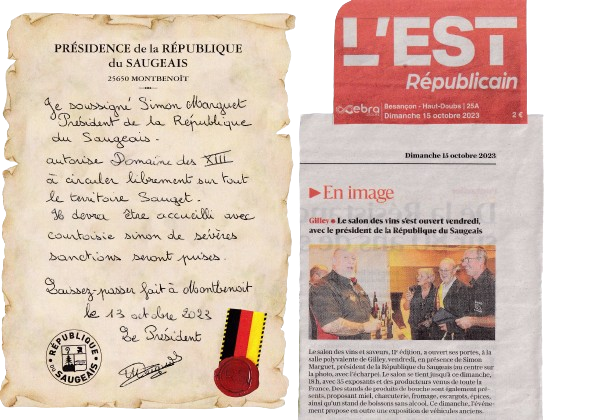 PRÉSIDENCE de la RÉPUBLIQUE
du SAUGEAIS
25650 MONTBENOÎT
Je soussigné Simon Marguet
Président de la République
du Saugeais.
autorise Domaine des XIII
à circuler librement sur tout
le territoire Sauget.
Il devra être accueilli avec
courtoisie sinon de sévères
sanctions seront prises.
Laissez-passer fait à Montbenoît
le 13 octobre 2023
Le Président
RÉPUBLIQUE
DU SAUGEAIS
L'EST
Républicain
ebra
Besançon - Haut-Doubs | 25A
Dimanche 15 octobre 2023
2 €
Dimanche 15 octobre 2023
►En image
Gilley ● Le salon des vins s'est ouvert vendredi,
avec le président de la République du Saugeais
Le salon des vins et saveurs, 11e édition, a ouvert ses portes, à la
salle polyvalente de Gilley, vendredi, en présence de Simon
Marguet, président de la République du Saugeais (au centre sur
la photo, avec l'écharpe). Le salon se tient jusqu'à ce dimanche,
18 h, avec 35 exposants et des producteurs venus de toute la
France. Des stands de produits de bouche sont également pré-
sents, proposant miel, charcuterie, fromage, escargots, épices,
ainsi qu'un stand de boissons sans alcool. Ce dimanche, l'événe-
ment propose en outre une exposition de véhicules anciens.